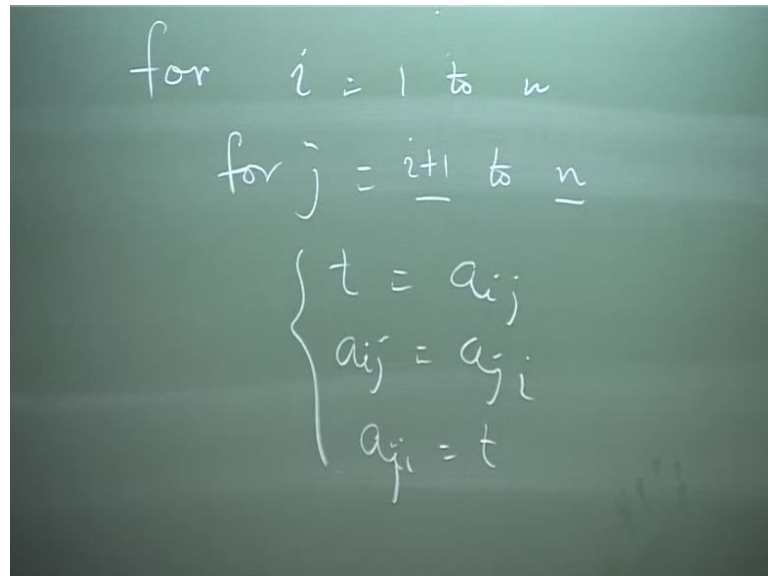 for i = 1 to n
for j = i+1 to n
{ t = aij
aij = aji
aji = t